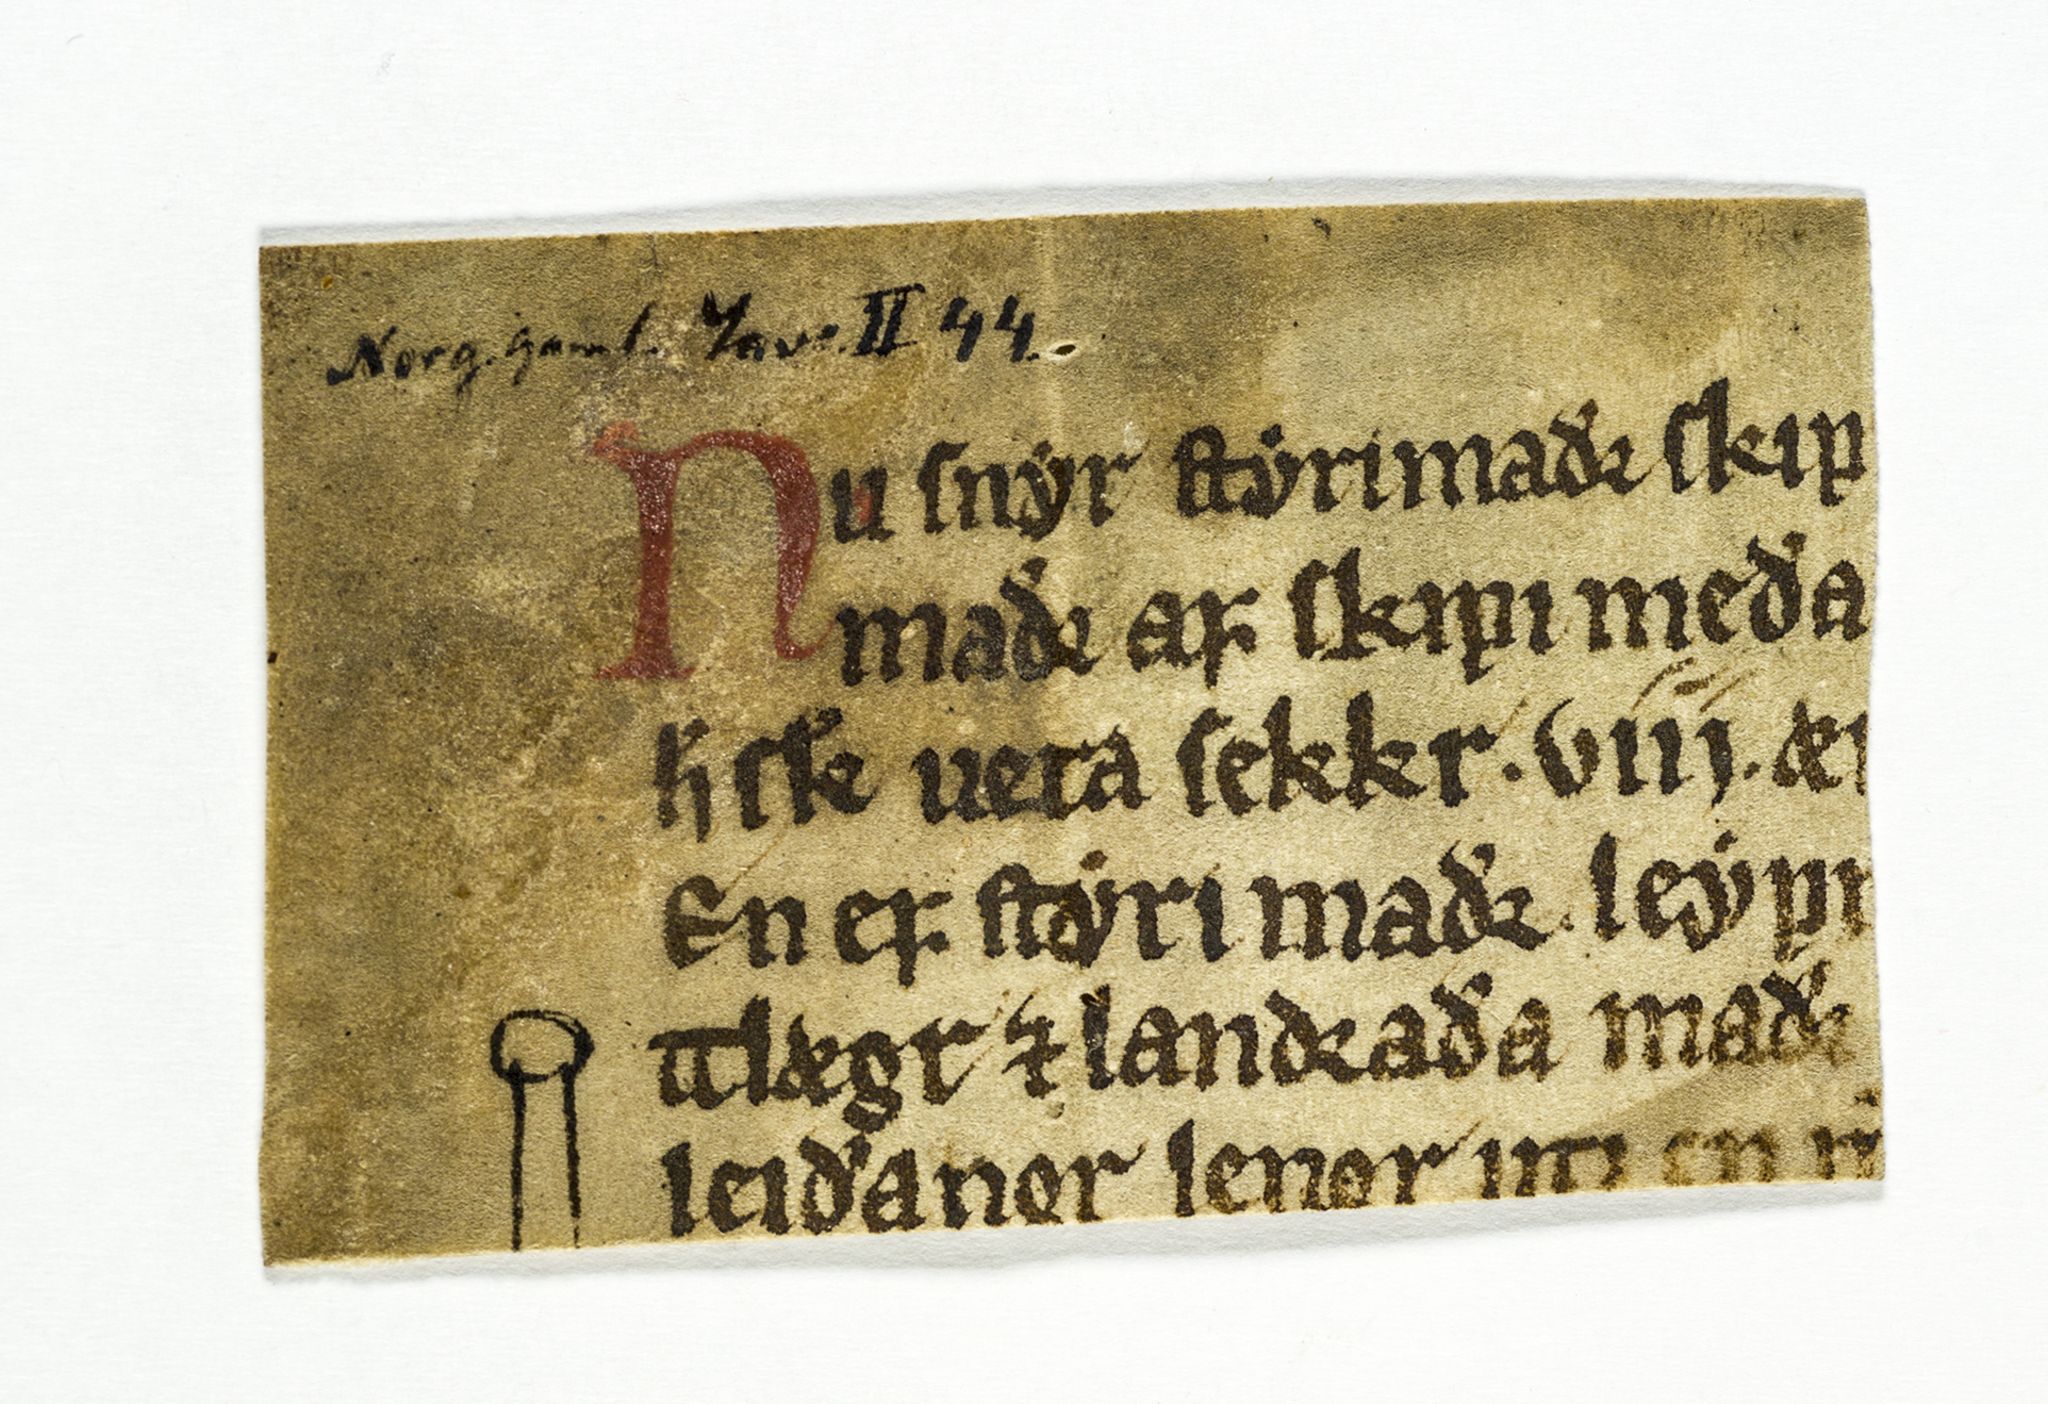 Norg. gaml. Love II 44.
Nu ſnẏr ſtẏrimaðꝛ ſkip
maðꝛ aꝼ ſkipi með a
ħ ſꝃ vera ſekkr · viij · æ
En eꝼ ſtẏri maðꝛ leẏp
utlægr ⁊ landꝛaða maðꝛ
leiðaner lener